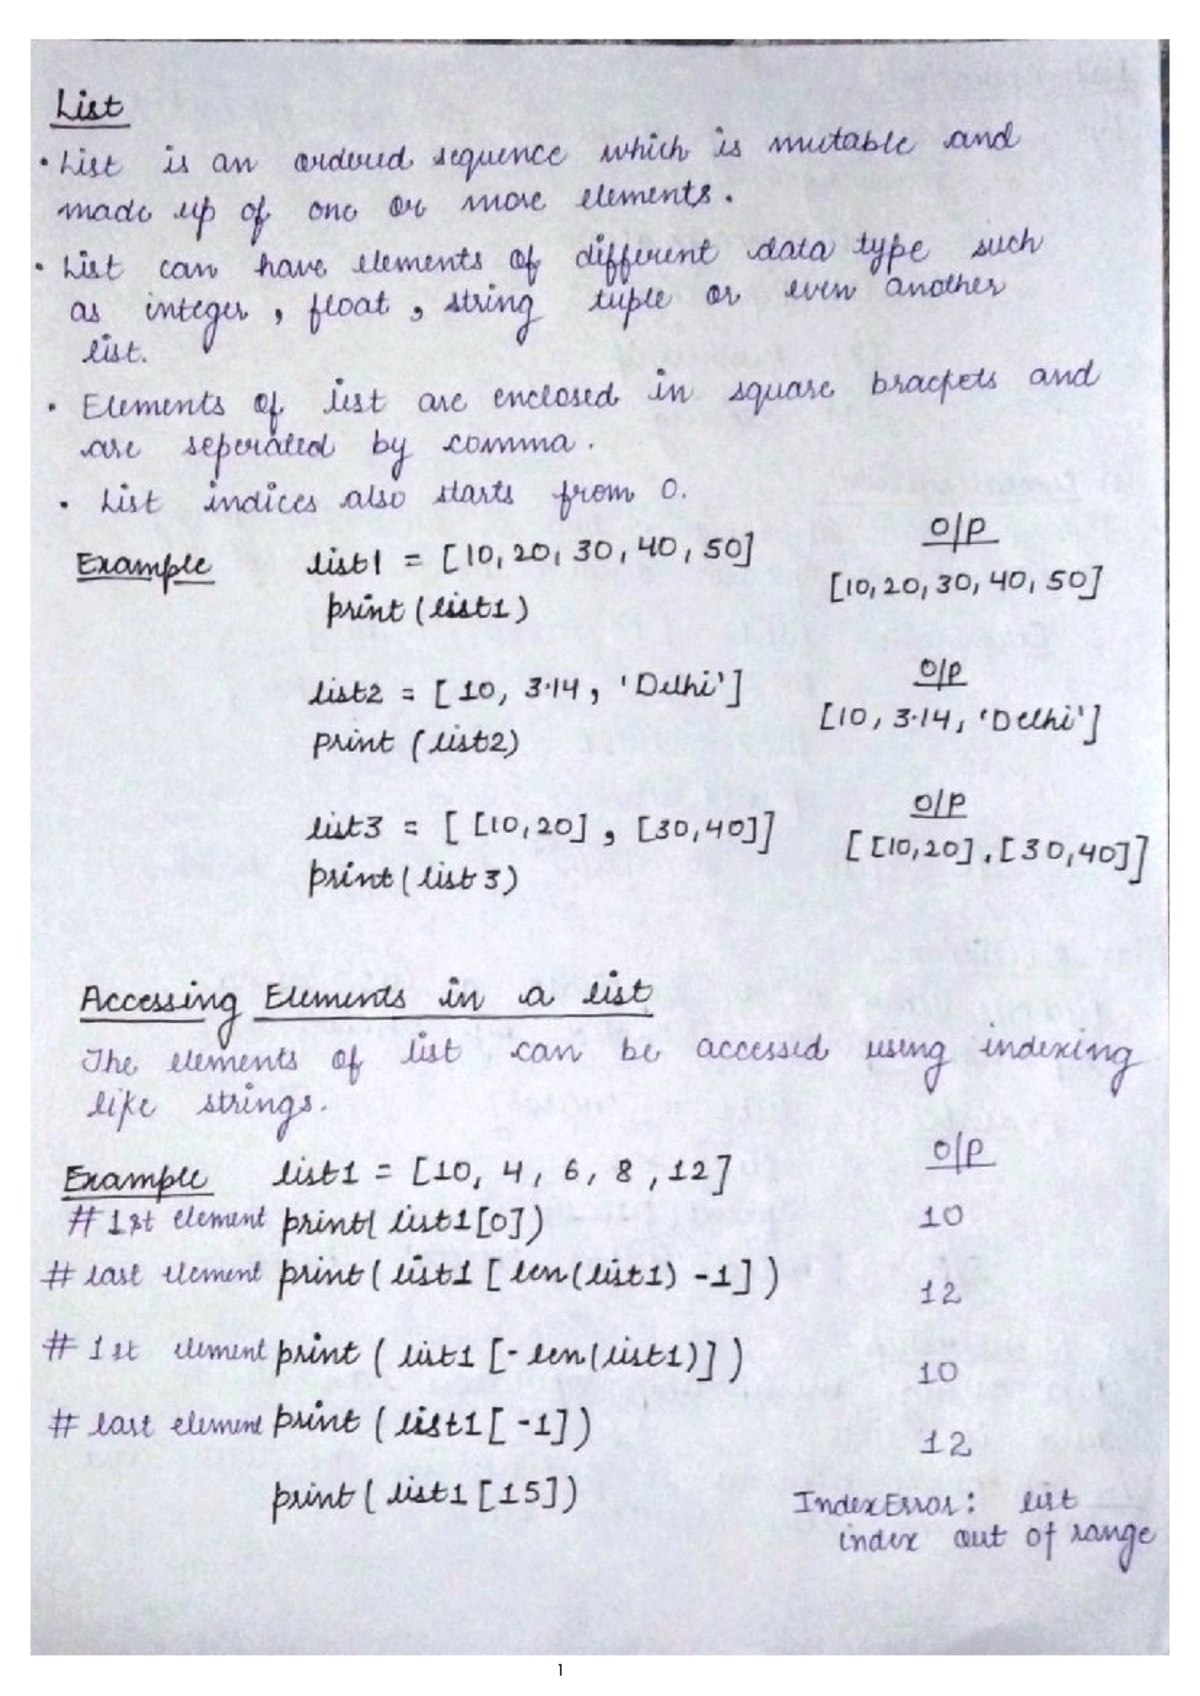 List
• List is an ordered sequence which is mutable and
made up of one or more elements.
• List can have elements of different data type such
as integer, float, string tuple or even another
list.
• Elements of list are enclosed in square brackets and
are seperated by comma.
• List indices also starts from 0.
Example list1 = [10, 20, 30, 40, 50] O/P
print (list1) [10, 20, 30, 40, 50]
list2 = [10, 3.14, 'Delhi'] O/P
print (list2) [10, 3.14, 'Delhi']
list3 = [ [10,20] , [30,40]] O/P
print( list 3) [ [10,20] , [30,40]]
Accessing Elements in a list
The elements of list can be accessed using indexing
like strings.
Example list1 = [10, 4, 6, 8, 12] O/P
# 1st element print( list1[0]) 10
# last element print( list1 [ len(list1) -1] ) 12
# 1st element print ( list1 [- len(list1)] ) 10
# last element print (list1[ -1]) 12
print( list1 [15]) IndexError: list
index out of range
1